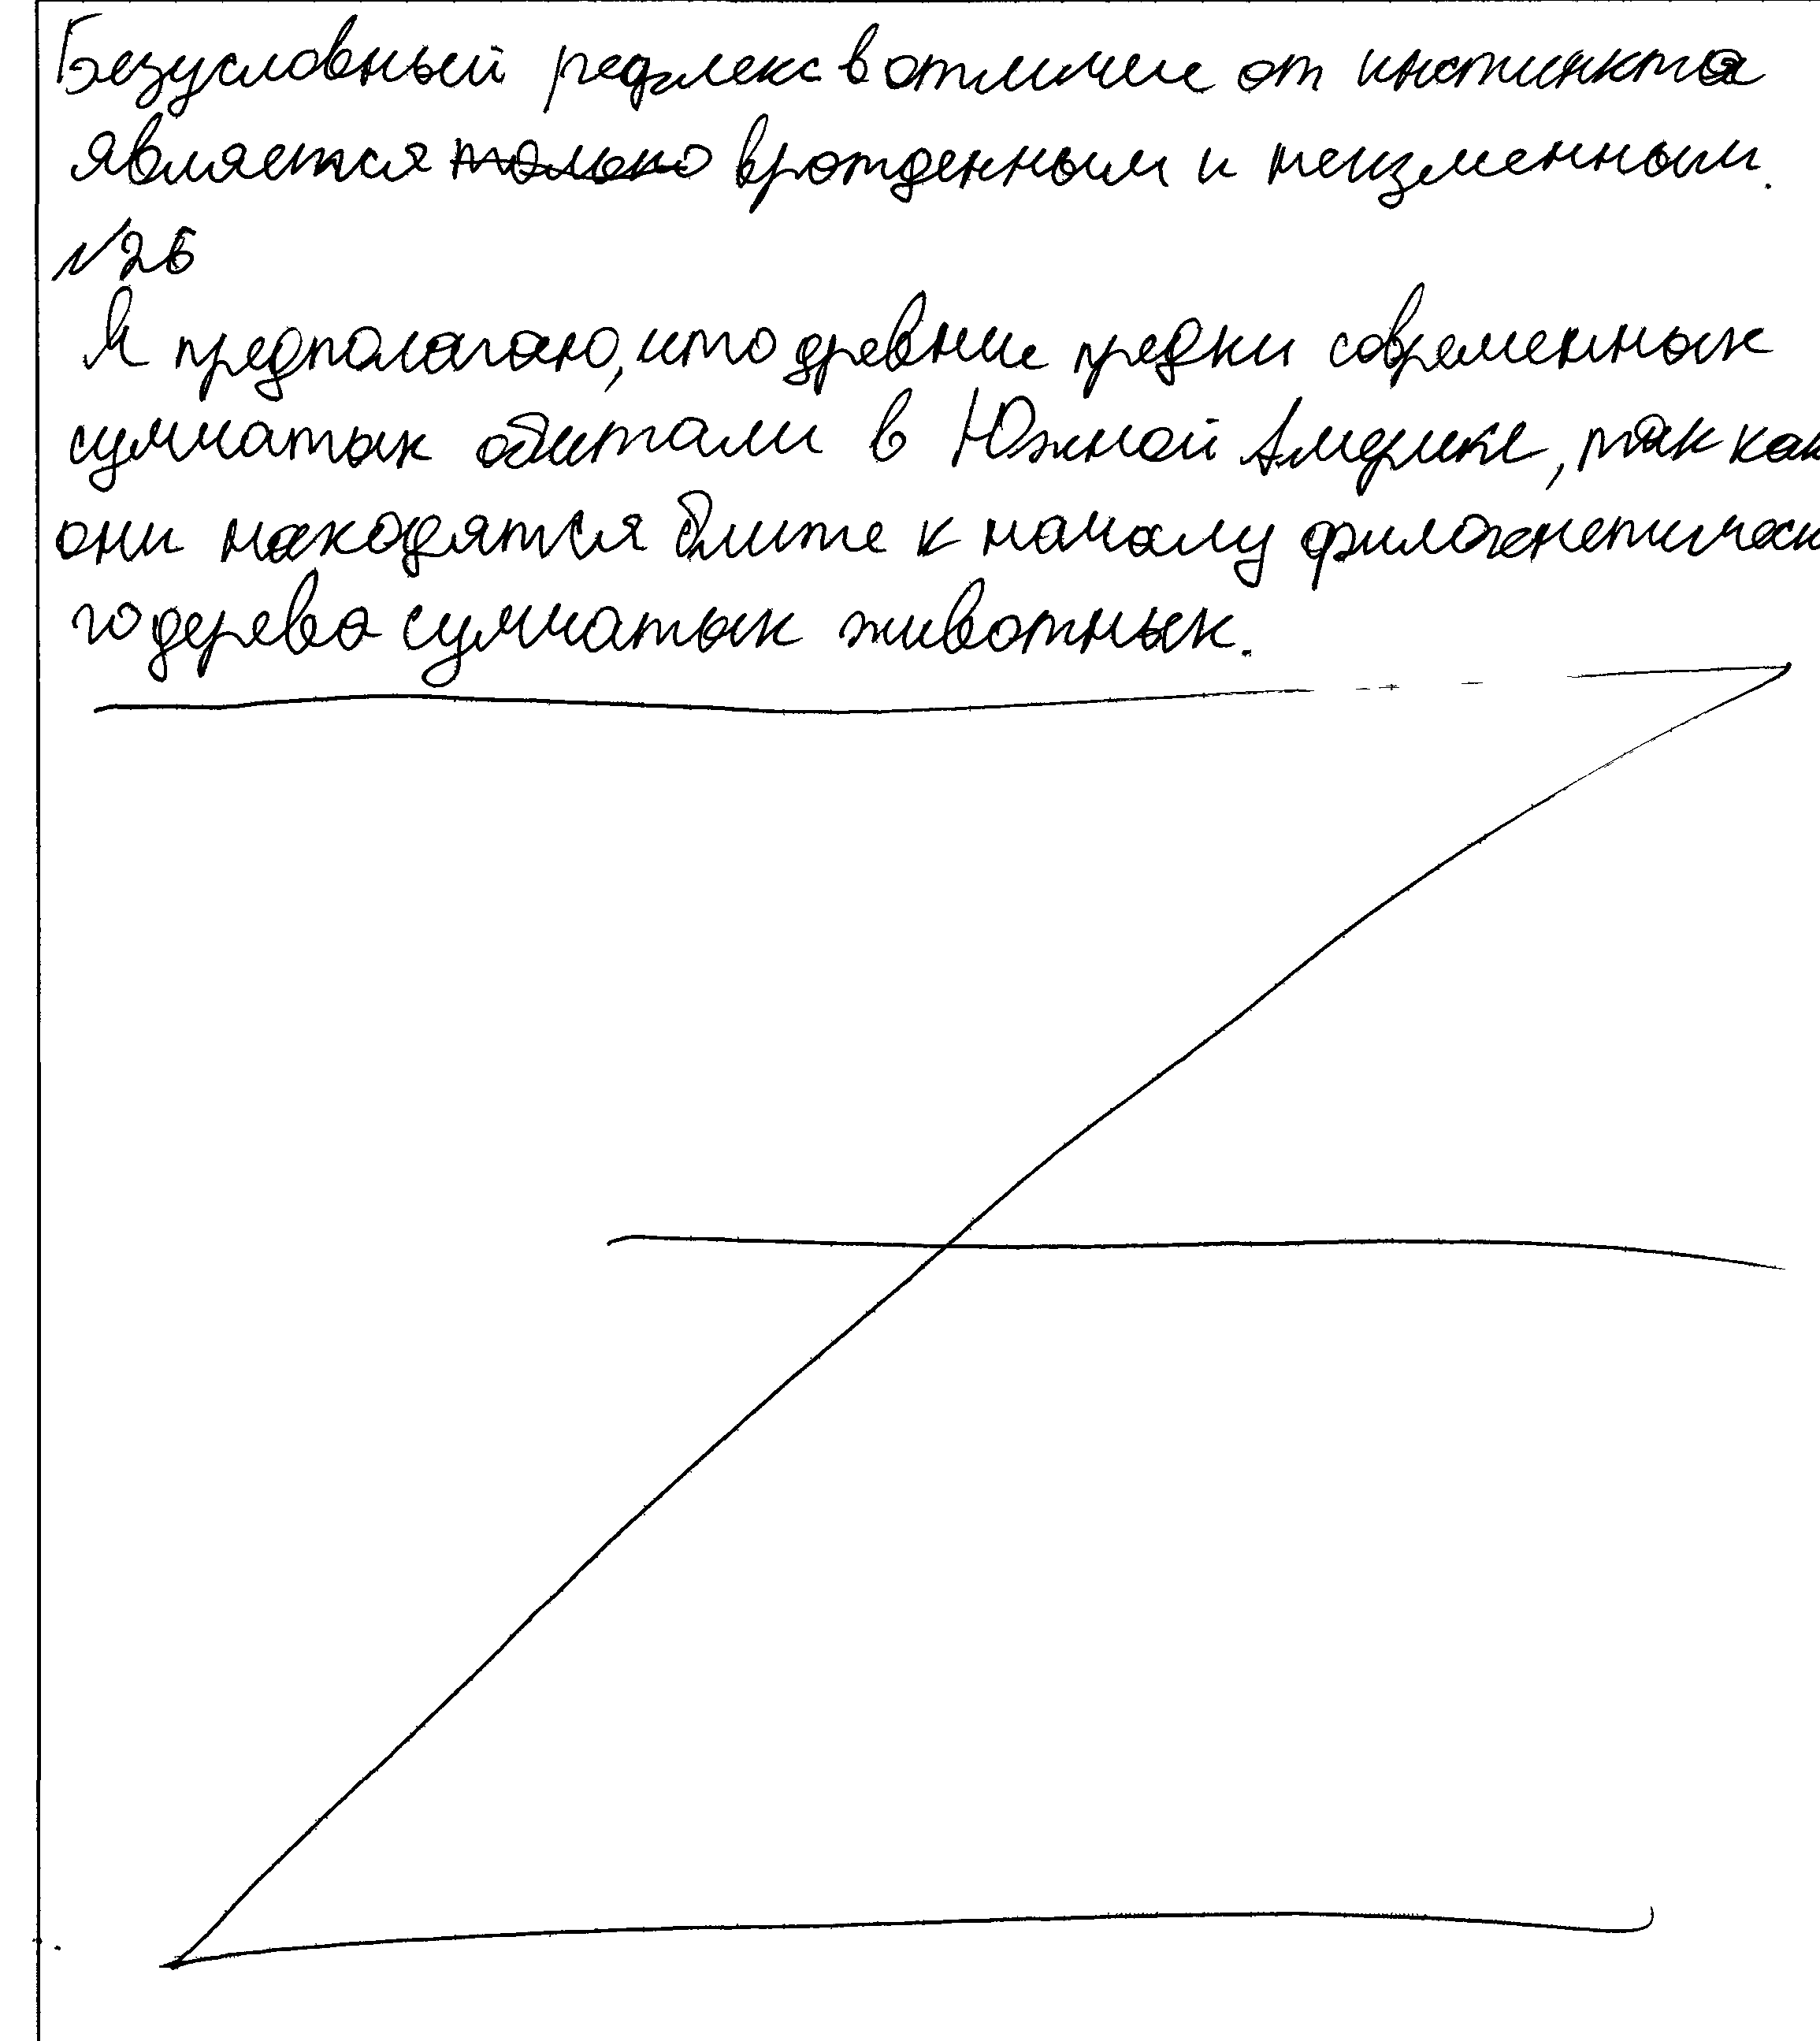 Безусловный рефлекс в отличие от инстинкта
является только врожденным и неизменным.
№26
Я предполагаю, что древние предки современных
сумчатых обитали в Южной Америке, так как
они находятся ближе к началу филогенетическ
го дерева сумчатых животных.